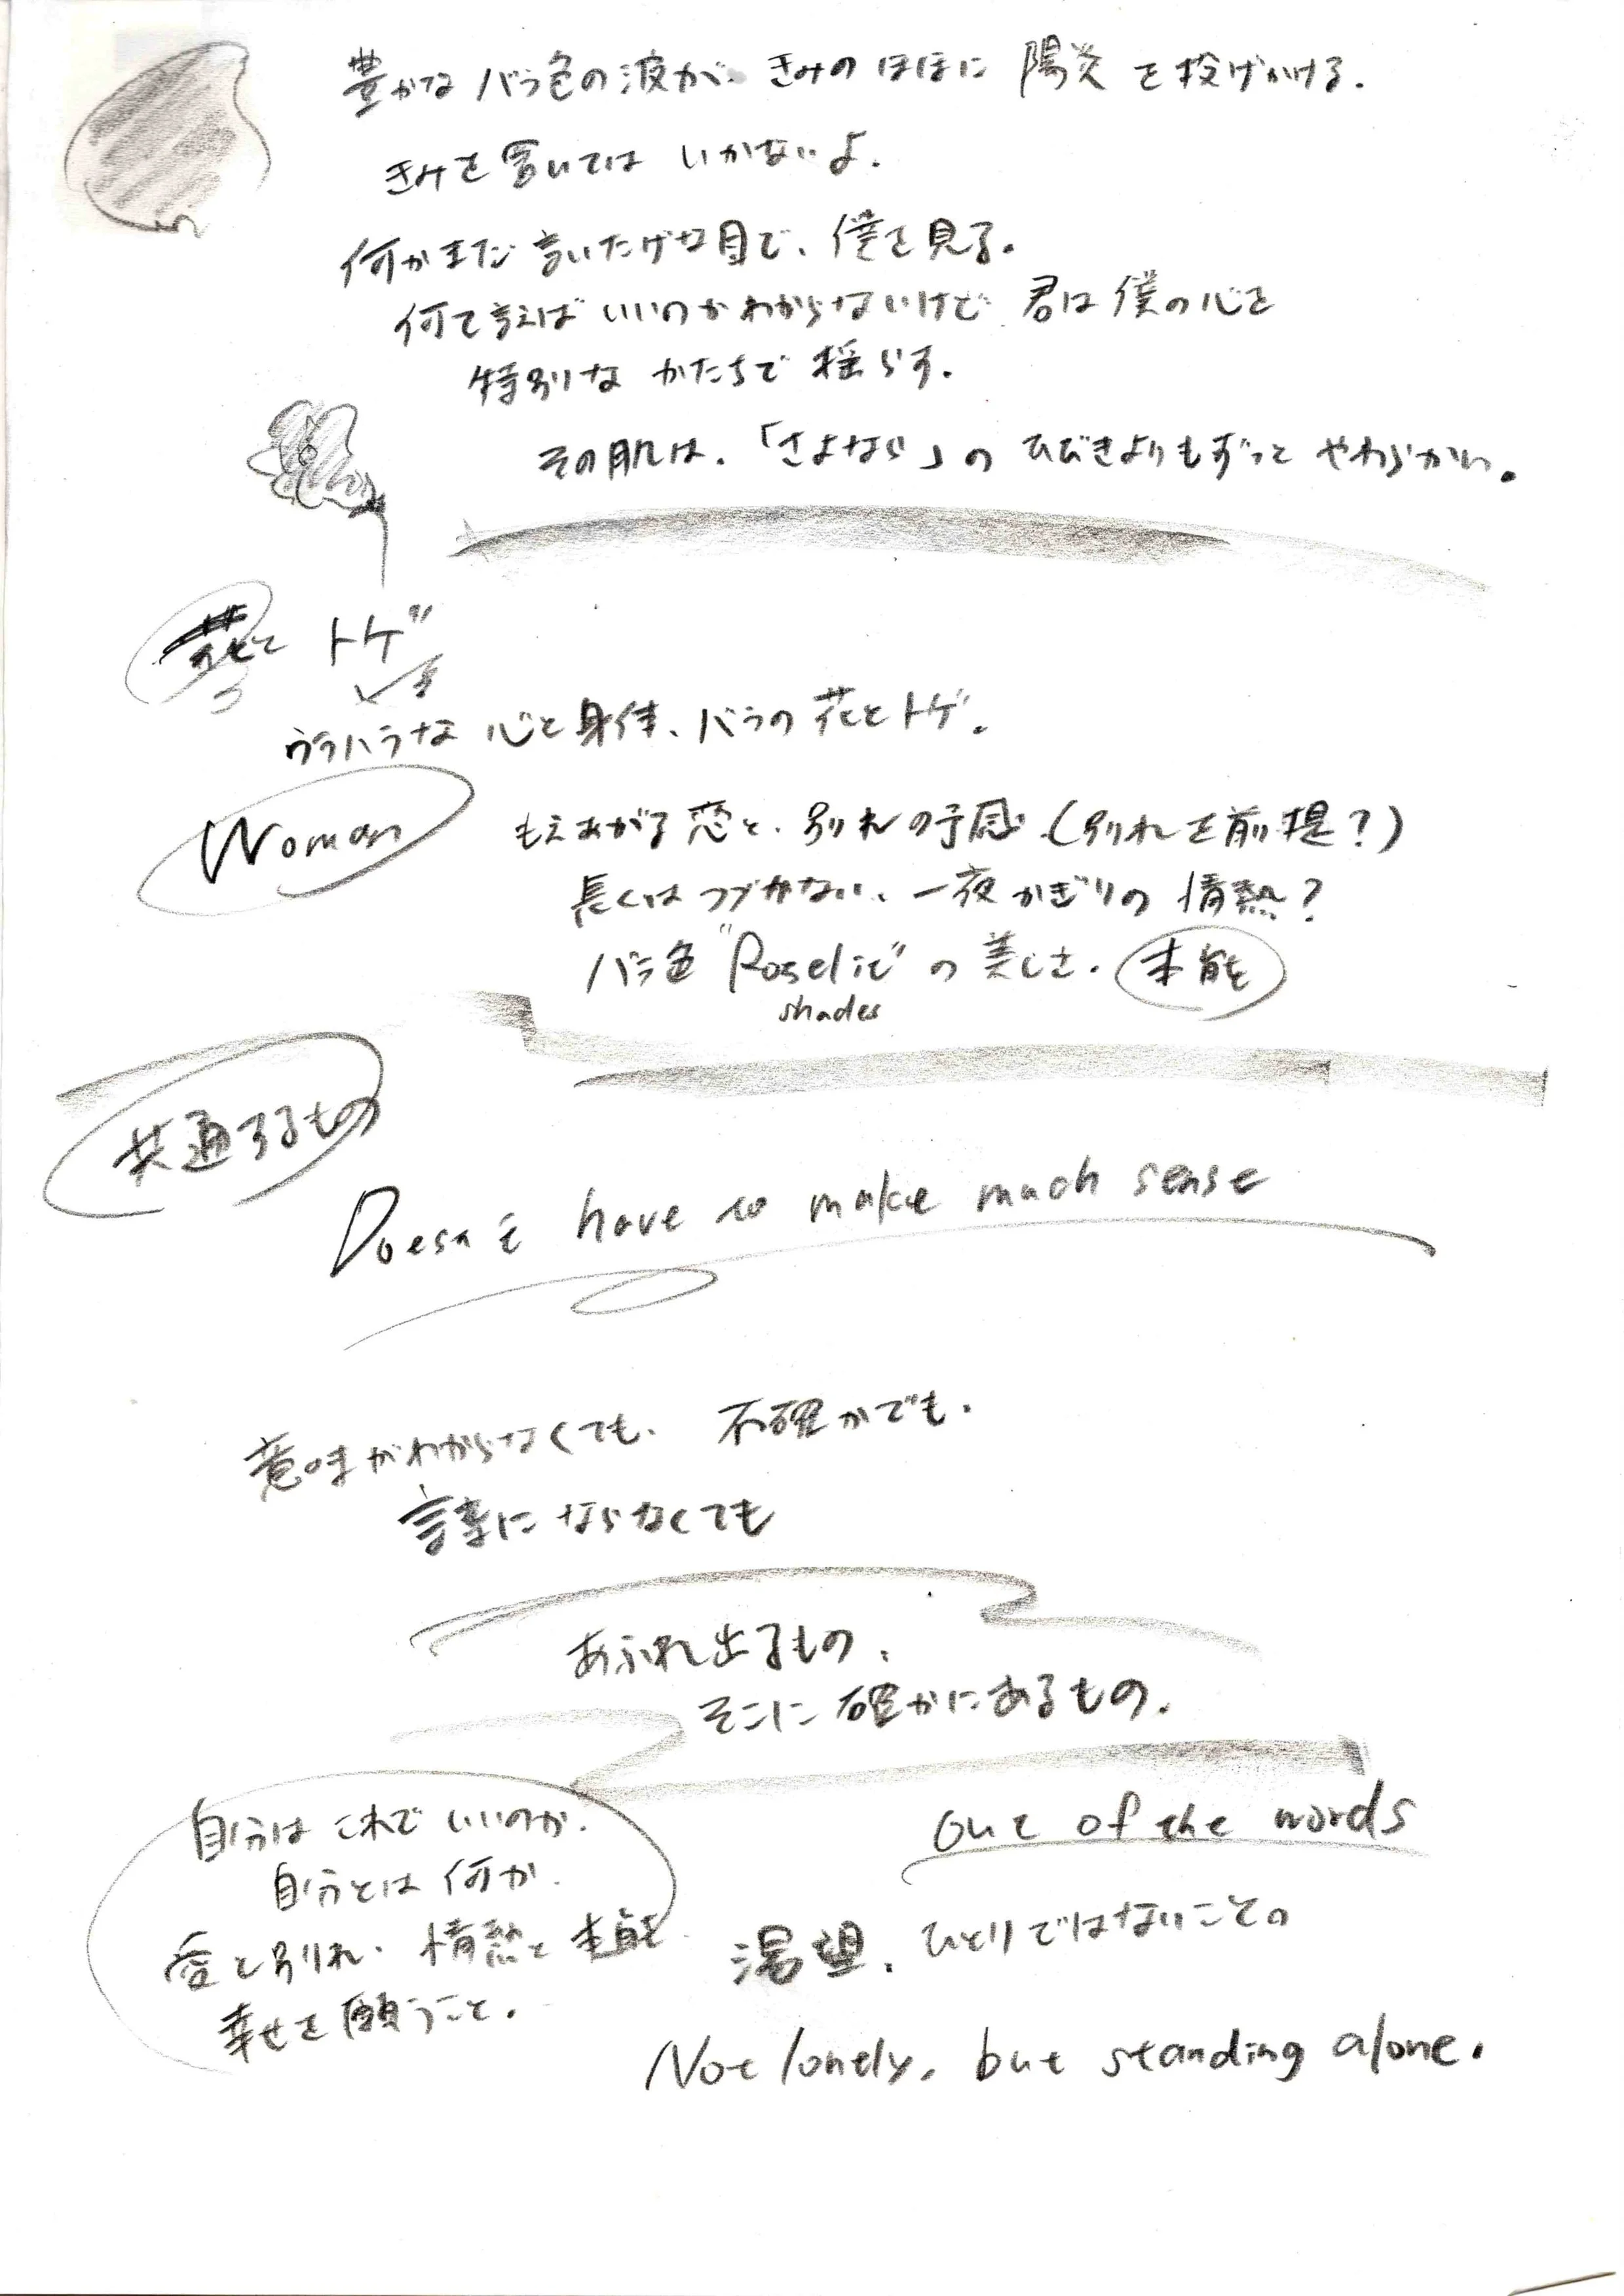 豊かな バラ色の液が、きみの ほほに 陽炎 を 投げかける.
きみを 置いては いかないよ.
何かまだ 言いたげな目で、僕を見る。
何て言えば いいのか わからないけど 君は 僕の心を
特別な かたちで 揺らす.
その肌は、「さよなら」の ひびきよりもずっと やわらかい。
花と トゲ
ウラハラな 心と身体、バラの 花とトゲ。
Woman
もえあがる 恋と、別れの予感 (別れを前提?)
長くは つづかない、一夜かぎりの 情熱?
バラ色 "Roselit" の 美しさ. 本能
shades
共通するもの
Doesn't have to make much sense
意味がわからなくても、不確かでも.
言葉に ならなくても
あふれ出るもの、
そこに 確かにあるもの.
自分は これで いいのか.
自分とは 何か.
愛と別れ. 情熱と 本能
幸せを 願うこと.
Out of the words
渇望、ひとりではないことの
Not lonely, but standing alone.